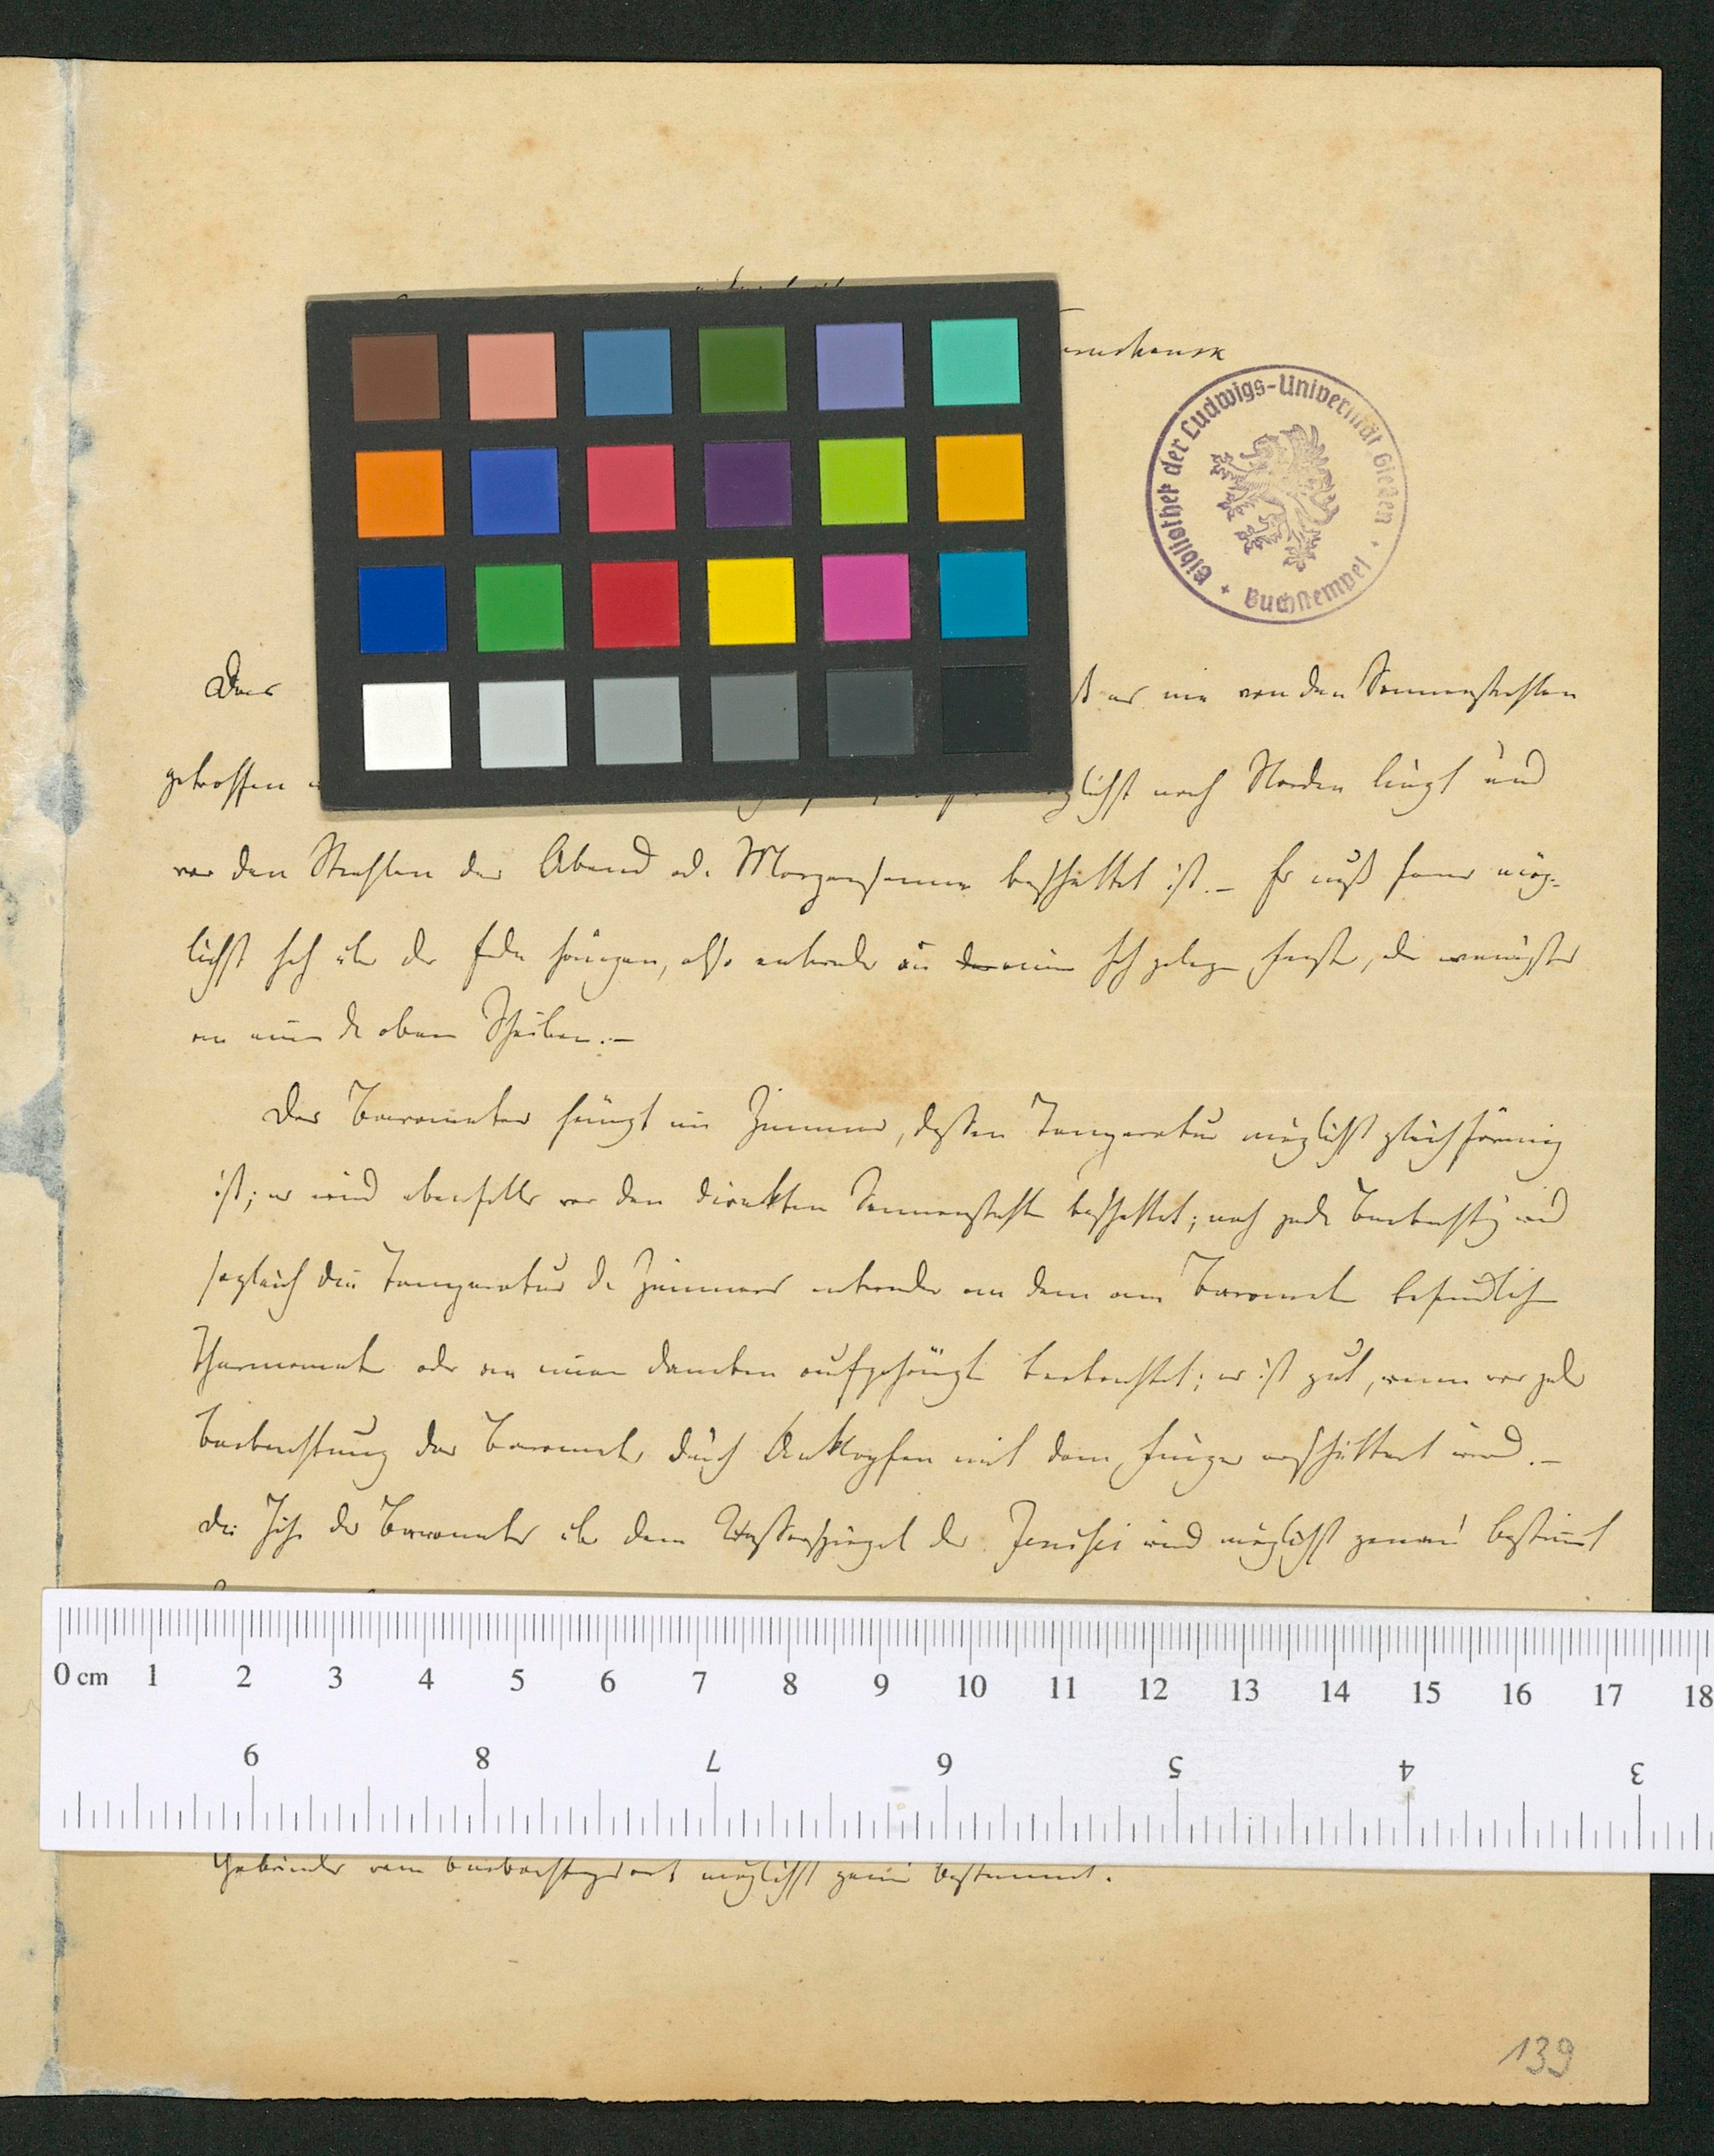 Bibliothek der Ludwigs-Universität Gießen
Buchstempel
Das
ß es nie von den Sonnenstrahlen
getroffen
glichst nach Norden liegt und
vor den Strahlen der Abend od. Morgensonne beschattet ist. – Es muß ferner mög-
lichst hoch über der Erde hängen, also entweder an der einem hoch gelegen Fenster, oder wenigster
an einer der obern Scheiben. –
Das Barometer hängt im Zimmer, dessen Temperatur möglichst gleichförmig
ist; es wird ebenfalls vor den direkten Sonnenstrahlen beschattet; nach jeder Beobachtung wird
sogleich die Temperatur des Zimmers entweder an dem am Barometer befindlichen
Thermometer oder an einem daneben aufgehängten beobachtet; es ist gut, wenn vor jeder
Beobachtung das Barometer durch Anklopfen mit dem Finger erschüttert wird. –
Die Höhe des Barometer über dem Wasserspiegel des Jenisei wird möglichst genau bestimmt
0 cm 1 2 3 4 5 6 7 8 9 10 11 12 13 14 15 16 17 18
9 8 7 6 5 4 3
Gebäudes vom Beobachtungsort möglichst genau bestimmt.
139